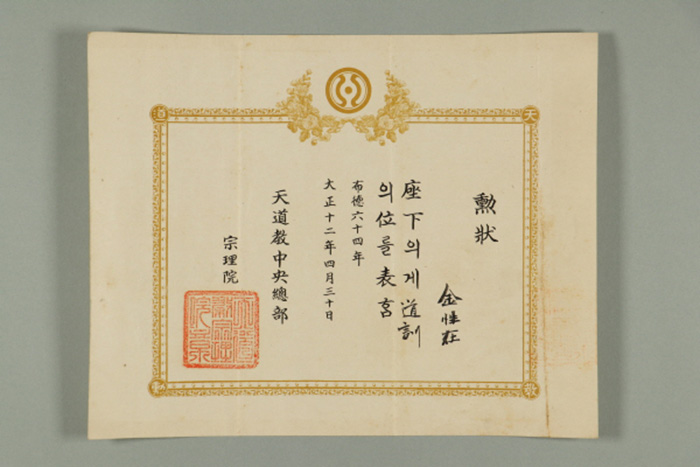 勲狀
金性在
座下의게 道訓
의位를表홈
布德六十四年
大正十二年四月三十日
天道敎中央總部
宗理院